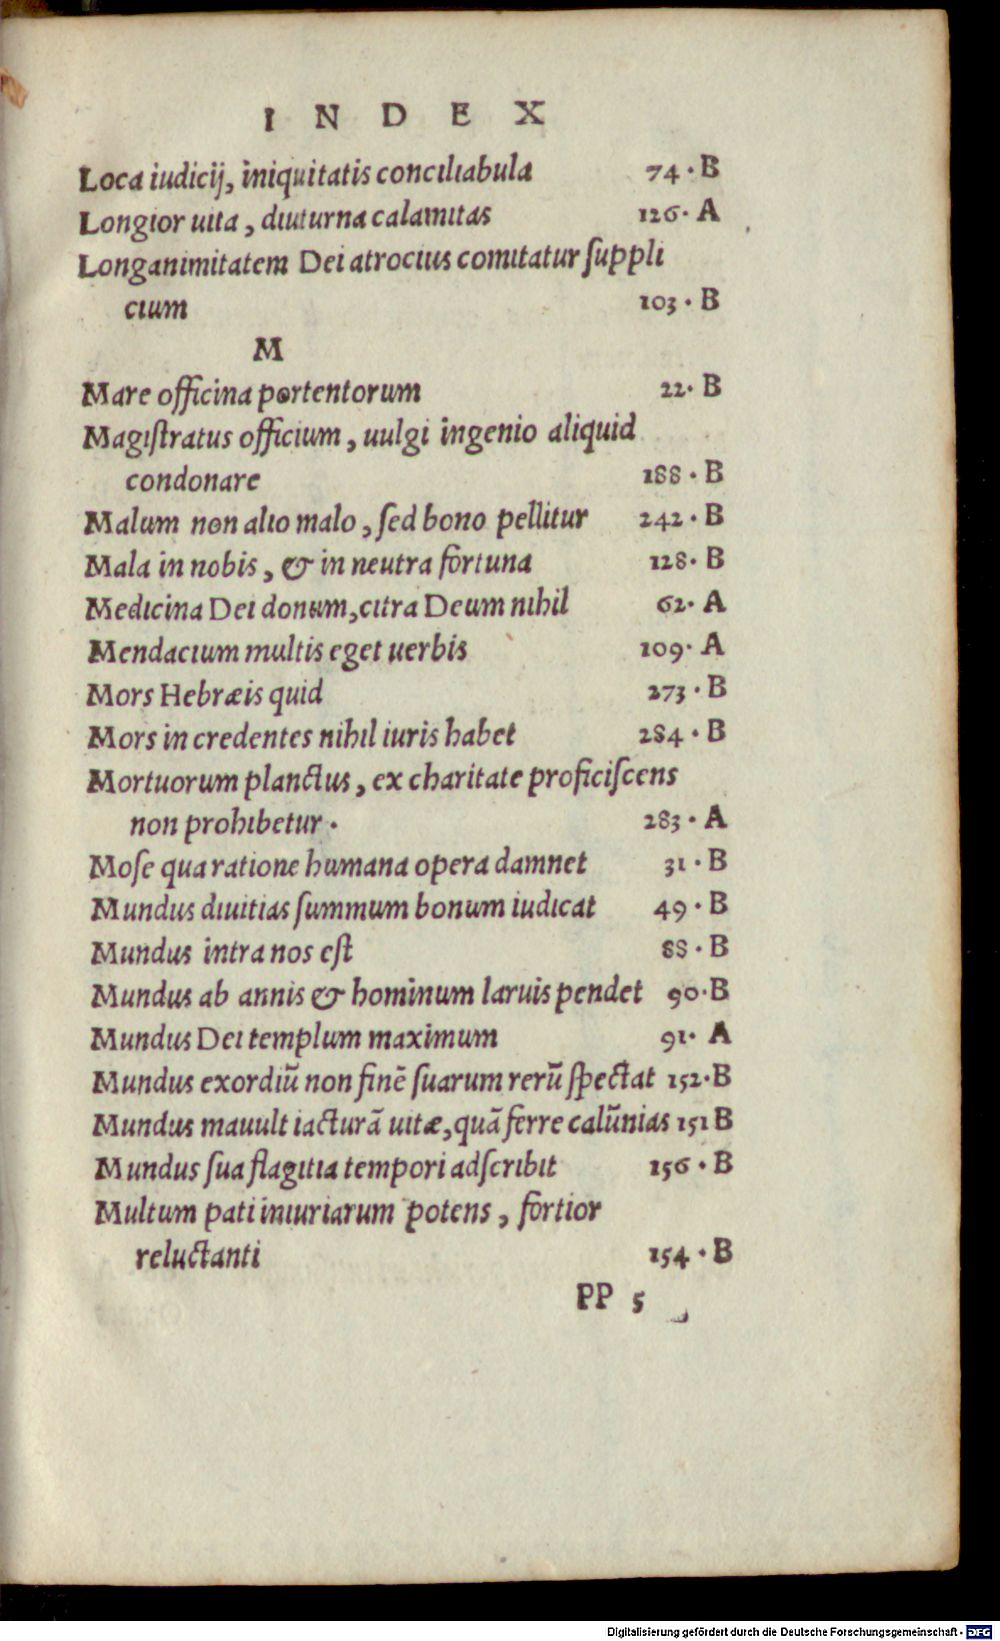 I N D E X
Loca iudicij, iniquitatis conciliabula 74 · B
Longior uita, diuturna calamitas 126 · A
Longanimitatem Dei atrocius comitatur ſuppli
cium 103 · B
M
Mare officina portentorum 22 · B
Magiſtratus officium, uulgi ingenio aliquid
condonare 188 · B
Malum non alio malo, ſed bono pellitur 242 · B
Mala in nobis, & in neutra fortuna 128 · B
Medicina Dei donum, citra Deum nihil 62 · A
Mendacium multis eget uerbis 109 · A
Mors Hebræis quid 273 · B
Mors in credentes nihil iuris habet 284 · B
Mortuorum planctus, ex charitate proficiſcens
non prohibetur · 283 · A
Moſe qua ratione humana opera damnet 31 · B
Mundus diuitias ſummum bonum iudicat 49 · B
Mundus intra nos eſt 88 · B
Mundus ab annis & hominum laruis pendet 90 · B
Mundus Dei templum maximum 91 · A
Mundus exordiū non finē ſuarum rerū ſpectat 152 · B
Mundus mauult iacturā uitæ, quā ferre calūnias 151 B
Mundus ſua flagitia tempori adſcribit 156 · B
Multum pati iniuriarum potens, fortior
reluctanti 154 · B
PP 5
Digitalisierung gefördert durch die Deutsche Forschungsgemeinschaft - DFG